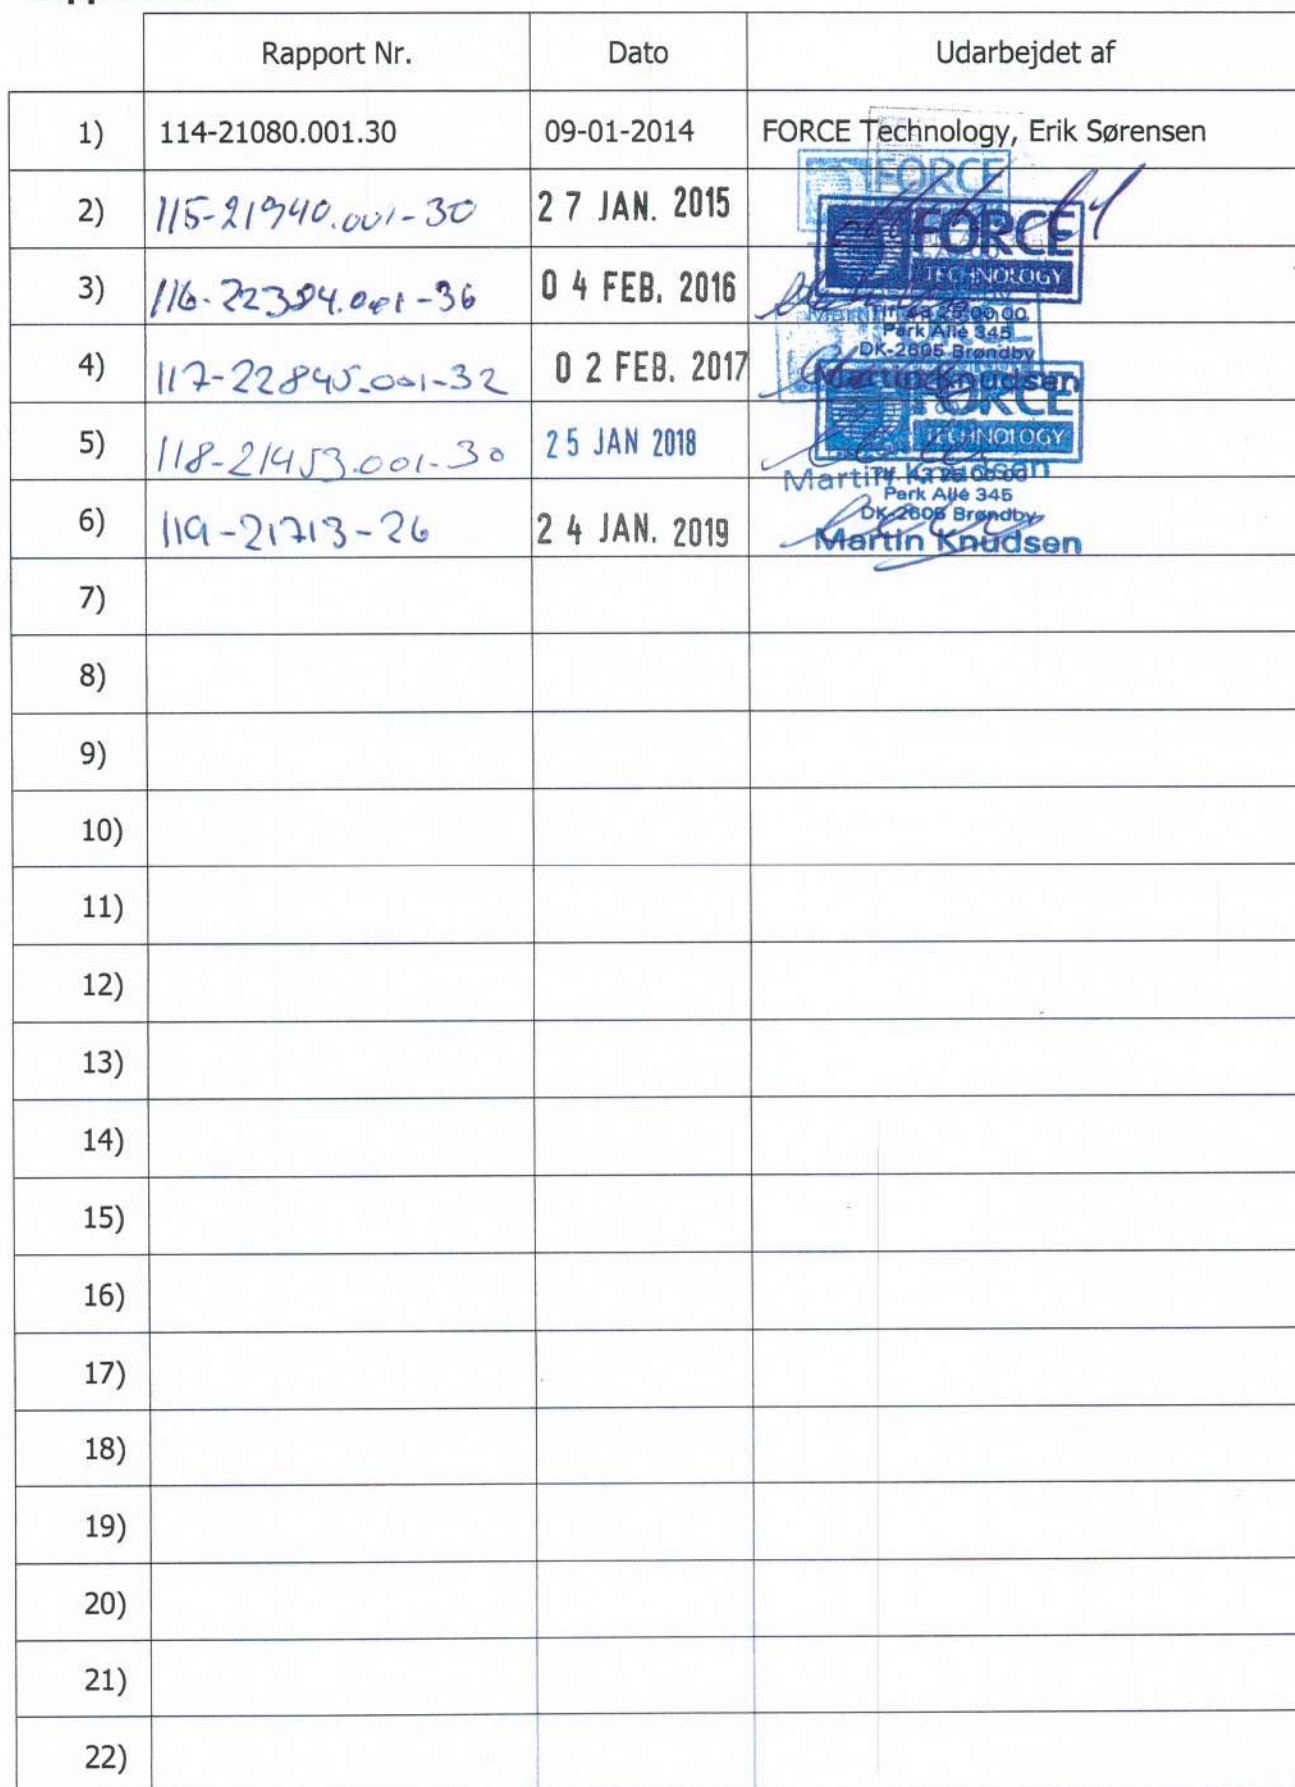 Rapport Nr. Dato Udarbejdet af
1) 114-21080.001.30 09-01-2014 FORCE Technology, Erik Sørensen
2) 115-21940.001-30 27 JAN. 2015
FORCE
FORCE
TECHNOLOGY
3) 04 FEB. 2016
Tlf. 43 26 00 00
Park Allé 345
DK-2605 Brøndby
4) 117-22845.001-32 02 FEB. 2017 Martin Knudsen
FORCE
TECHNOLOGY
5) 118-21453.001-30 25 JAN 2018
Martin Knudsen
Tlf. 43 26 00 00
Park Allé 345
DK-2605 Brøndby
6) 119-21713-26 24 JAN. 2019 Martin Knudsen
7)
8)
9)
10)
11)
12)
13)
14)
15)
16)
17)
18)
19)
20)
21)
22)